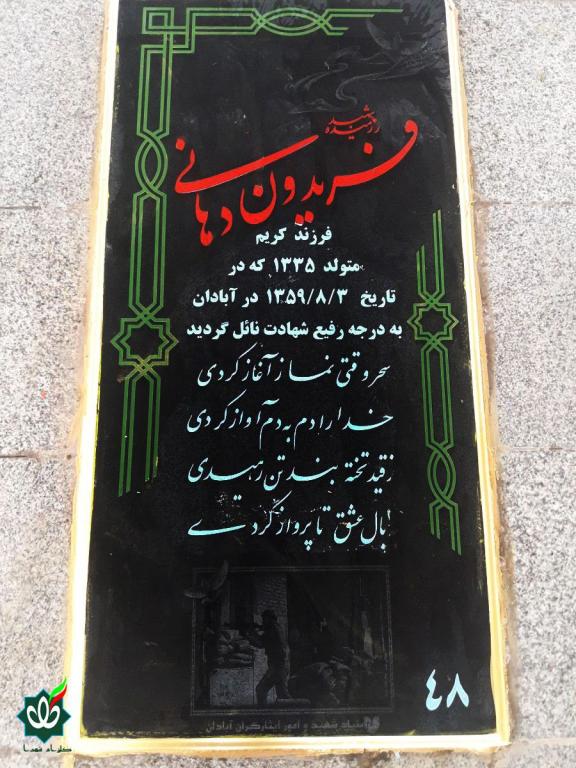 رزمنده شهید
فریدون دهانی
فرزند کریم
متولد ۱۳۳۵ که در
تاریخ ۱۳۵۹/۸/۳ در آبادان
به درجه رفیع شهادت نائل گردید
سحر وقتی نماز آغاز کردی
خدا را دم به دم آواز کردی
ز قید تخته بند تن رهیدی
به بال عشق تا پرواز کردی
بنیاد شهید و امور ایثارگران آبادان
۴۸
گلزار شهدا